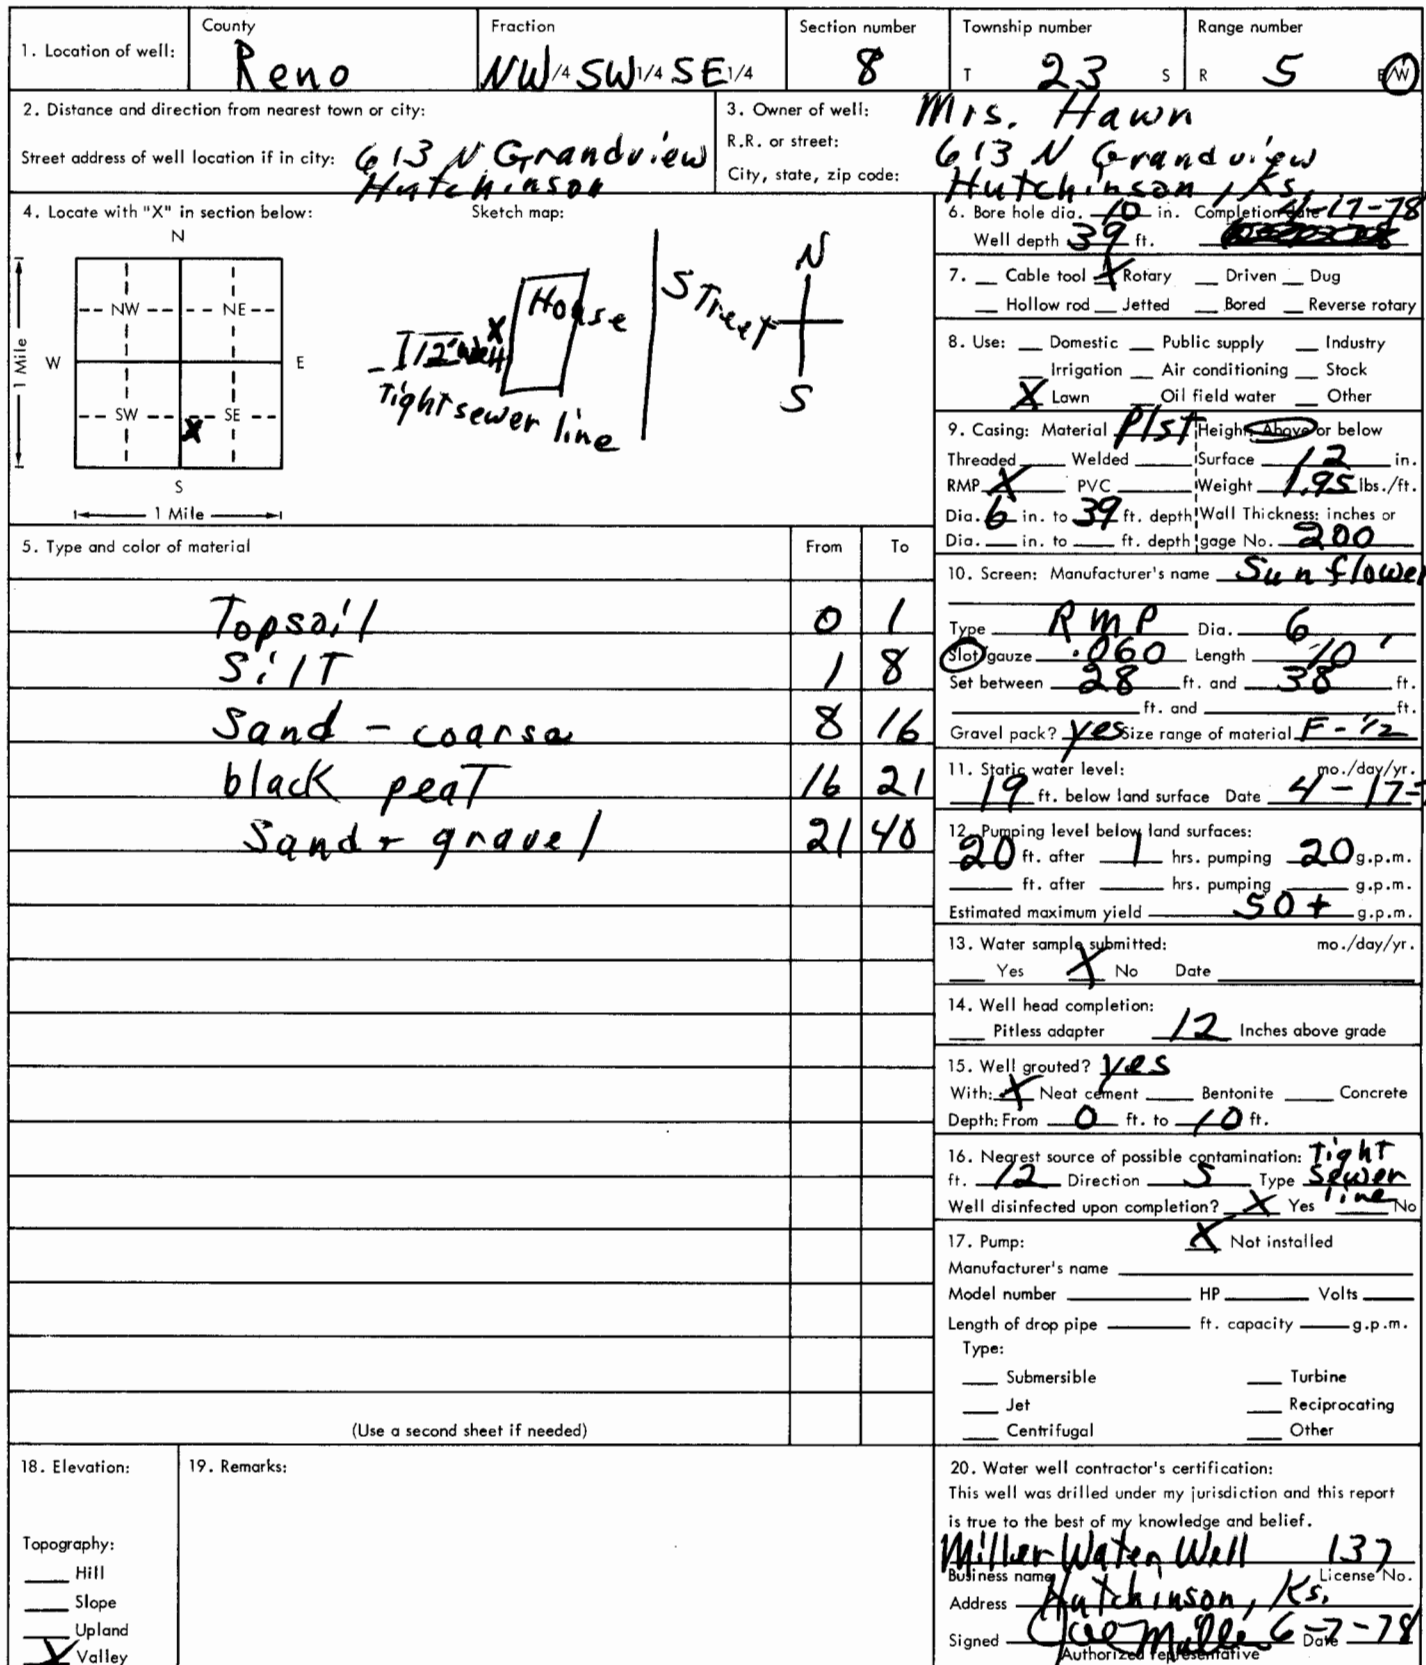 1. Location of well: County Reno Fraction NW 1/4 SW 1/4 SE 1/4 Section number 8 Township number T 23 S Range number R 5 E/W
2. Distance and direction from nearest town or city:
Street address of well location if in city: 613 N Grandview
Hutchinson
3. Owner of well: Mrs. Hawn
R.R. or street: 613 N Grandview
City, state, zip code: Hutchinson, Ks.
4. Locate with "X" in section below:
N
NW NE
W E
SW SE
X
S
1 Mile
1 Mile
Sketch map:
House
X
12' well
Tight sewer line
Street
N
S
5. Type and color of material From To
Topsoil 0 1
SilT 1 8
Sand - coarse 8 16
black peaT 16 21
Sand + gravel 21 40
(Use a second sheet if needed)
6. Bore hole dia. 10 in. Completion date 4-17-78
Well depth 39 ft.
7. Cable tool X Rotary Driven Dug
Hollow rod Jetted Bored Reverse rotary
8. Use: Domestic Public supply Industry
Irrigation Air conditioning Stock
X Lawn Oil field water Other
9. Casing: Material Plst Height: Above or below
Threaded Welded Surface 12 in.
RMP X PVC Weight 1.95 lbs./ft.
Dia. 6 in. to 39 ft. depth Wall Thickness: inches or
Dia. in. to ft. depth gage No. 200
10. Screen: Manufacturer's name Sunflower
Type RMP Dia. 6
Slot/gauze .060 Length 10'
Set between 28 ft. and 38 ft.
ft. and ft.
Gravel pack? yes Size range of material F-1/2
11. Static water level: mo./day/yr.
19 ft. below land surface Date 4-17-
12. Pumping level below land surfaces:
20 ft. after 1 hrs. pumping 20 g.p.m.
ft. after hrs. pumping g.p.m.
Estimated maximum yield 50+ g.p.m.
13. Water sample submitted: mo./day/yr.
Yes X No Date
14. Well head completion:
Pitless adapter 12 Inches above grade
15. Well grouted? yes
With: X Neat cement Bentonite Concrete
Depth: From 0 ft. to 10 ft.
16. Nearest source of possible contamination: Tight
ft. 12 Direction S Type Sewer
line
Well disinfected upon completion? X Yes No
17. Pump: X Not installed
Manufacturer's name
Model number HP Volts
Length of drop pipe ft. capacity g.p.m.
Type:
Submersible Turbine
Jet Reciprocating
Centrifugal Other
18. Elevation:
Topography:
Hill
Slope
Upland
X Valley
19. Remarks:
20. Water well contractor's certification:
This well was drilled under my jurisdiction and this report
is true to the best of my knowledge and belief.
Miller Water Well 137
Business name License No.
Address Hutchinson, Ks.
Signed Joe Miller Date 6-7-78
Authorized representative